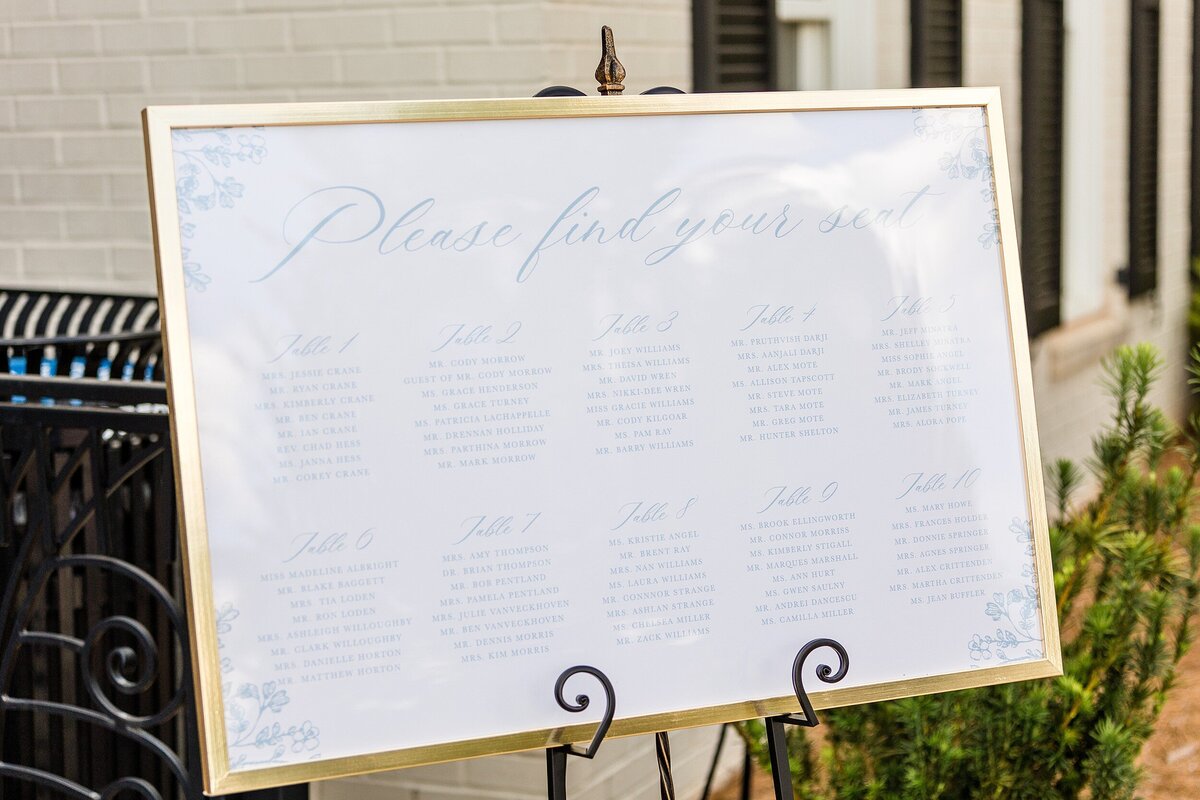 Please find your seat
Table 1
MRS. JESSIE CRANE
MR. RYAN CRANE
MRS. KIMBERLY CRANE
MR. BEN CRANE
MR. IAN CRANE
REV. CHAD HESS
MS. JANNA HESS
MR. COREY CRANE
Table 2
MR. CODY MORROW
GUEST OF MR. CODY MORROW
MS. GRACE HENDERSON
MS. GRACE TURNEY
MS. PATRICIA LACHAPPELLE
MR. DRENNAN HOLLIDAY
MRS. PARTHINA MORROW
MR. MARK MORROW
Table 3
MR. JOEY WILLIAMS
MRS. THEISA WILLIAMS
MR. DAVID WREN
MRS. NIKKI-DEE WREN
MISS GRACIE WILLIAMS
MR. CODY KILGOAR
MS. PAM RAY
MR. BARRY WILLIAMS
Table 4
MR. PRUTHVISH DARJI
MRS. AANJALI DARJI
MR. ALEX MOTE
MS. ALLISON TAPSCOTT
MR. STEVE MOTE
MRS. TARA MOTE
MR. GREG MOTE
MR. HUNTER SHELTON
Table 5
MR. JEFF MINATRA
MRS. SHELLEY MINATRA
MISS SOPHIE ANGEL
MR. BRODY SOCKWELL
MR. MARK ANGEL
MRS. ELIZABETH TURNEY
MR. JAMES TURNEY
MRS. ALORA POPE
Table 6
MISS MADELINE ALBRIGHT
MR. BLAKE BAGGETT
MRS. TIA LODEN
MR. RON LODEN
MRS. ASHLEIGH WILLOUGHBY
MR. CLARK WILLOUGHBY
MRS. DANIELLE HORTON
MR. MATTHEW HORTON
Table 7
MRS. AMY THOMPSON
DR. BRIAN THOMPSON
MR. BOB PENTLAND
MRS. PAMELA PENTLAND
MRS. JULIE VANVECKHOVEN
MR. BEN VANVECKHOVEN
MR. DENNIS MORRIS
MRS. KIM MORRIS
Table 8
MS. KRISTIE ANGEL
MR. BRENT RAY
MRS. NAN WILLIAMS
MS. LAURA WILLIAMS
MR. CONNNOR STRANGE
MRS. ASHLAN STRANGE
MS. CHELSEA MILLER
MR. ZACK WILLIAMS
Table 9
MS. BROOK ELLINGWORTH
MR. CONNOR MORRISS
MS. KIMBERLY STIGALL
MR. MARQUES MARSHALL
MS. ANN HURT
MS. GWEN SAULNY
MR. ANDREI DANCESCU
MS. CAMILLA MILLER
Table 10
MS. MARY HOWE
MRS. FRANCES HOLDER
MR. DONNIE SPRINGER
MRS. AGNES SPRINGER
MR. ALEX CRITTENDEN
MRS. MARTHA CRITTENDEN
MS. JEAN BUFFLER